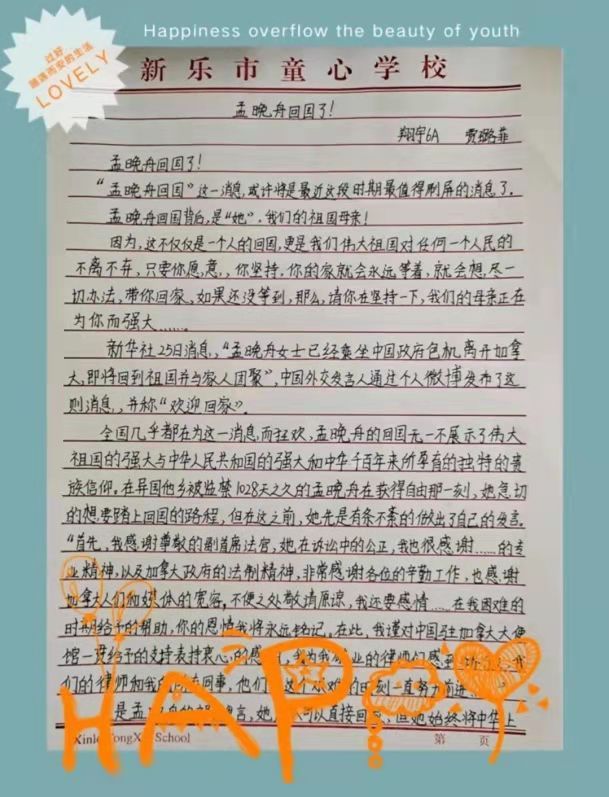 Happiness overflow the beauty of youth
过好
随遇而安的生活
LOVELY
新乐市童心学校
孟晚舟回国了!
翔宇6A 贾璐菲
孟晚舟回国了!
“孟晚舟回国”这一消息,或许将是最近这段时期最值得刷屏的消息了。
孟晚舟回国背后,是“她”,我们的祖国母亲!
因为,这不仅仅是一个人的回国,更是我们伟大祖国对任何一个人民的
不离不弃,只要你愿意,你坚持,你的家就会永远等着,就会想尽一
切办法,带你回家,如果还没等到,那么,请你在坚持一下,我们的母亲正在
为你而强大……
新华社25日消息,“孟晚舟女士已经乘坐中国政府包机离开加拿
大,即将回到祖国并与家人团聚”,中国外交发言人通过个人微博发布了这
则消息,并称“欢迎回家”。
全国几乎都在为这一消息而狂欢,孟晚舟的回国无一不展示了伟大
祖国的强大与中华人民共和国的强大和中华千百年来所孕育的独特的贵
族信仰。在异国他乡被监禁1028天之久的孟晚舟在获得自由那一刻,她急切
的想要踏上回国的路程,但在这之前,她先是有条不紊的做出了自己的发言。
“首先,我感谢尊敬的副首席法官,她在诉讼中的公正,我也很感谢……的专
业精神,以及加拿大政府的法制精神,非常感谢各位的辛勤工作,也感谢
加拿大人们和媒体的宽容,不便之处敬请原谅,我还要感情……在我困难的
时期给予的帮助,你的恩情我将永远铭记,在此,我谨对中国驻加拿大大使
馆一度给予的支持表持衷心的感 我为我 业的律师们感到
们的律师和我的 回事,他们 这个 的时刻一直努力前进
是孟 言,她 可以直接回 ,但她始终将中华上
HAP
Xinle Tongxin School
第 页